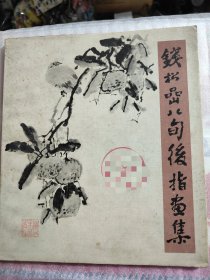 錢松喦八旬後指畫集